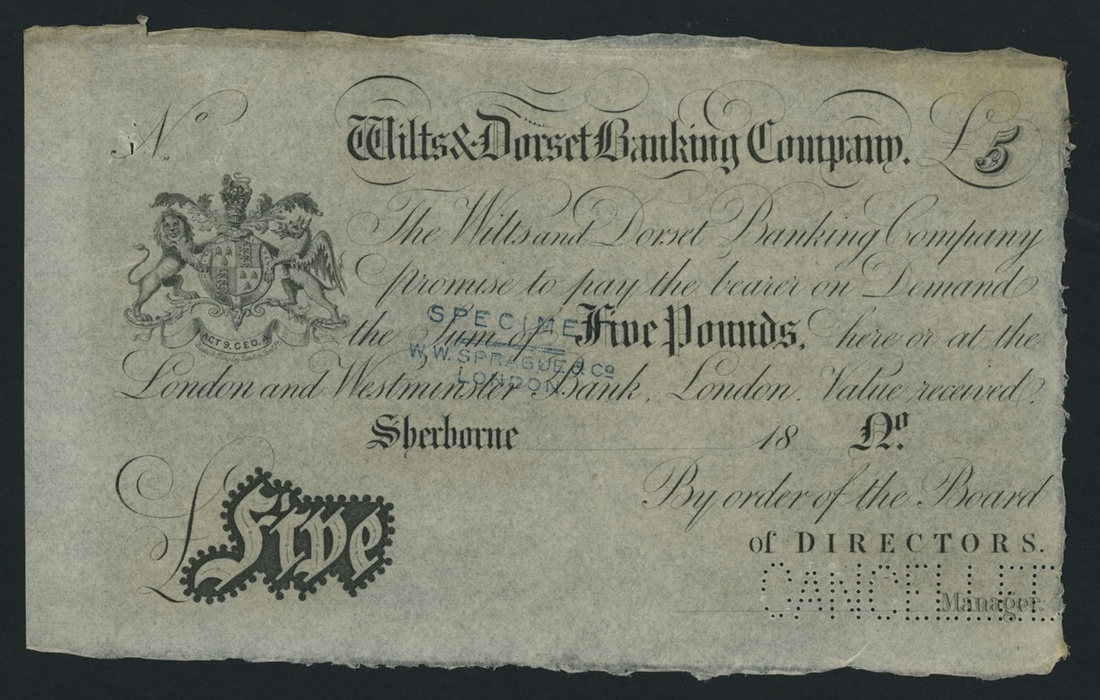 No.
Wilts & Dorset Banking Company. £5
The Wilts and Dorset Banking Company
promise to pay the bearer on Demand
the Sum of Five Pounds, here or at the
London and Westminster Bank, London. Value received.
ACT 9. GEO. 4
SPECIMEN
W.W. SPRAGUE & Co
LONDON
Sherborne 18 No.
£Five
By order of the Board
of DIRECTORS.
CANCELLED
Manager.